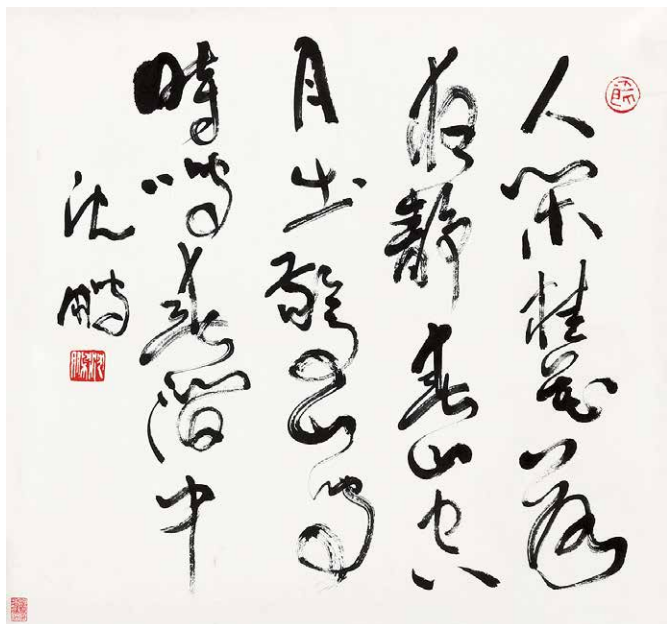 人闲桂花落
夜静春山空
月出惊山鸟
时鸣春涧中
沈鹏